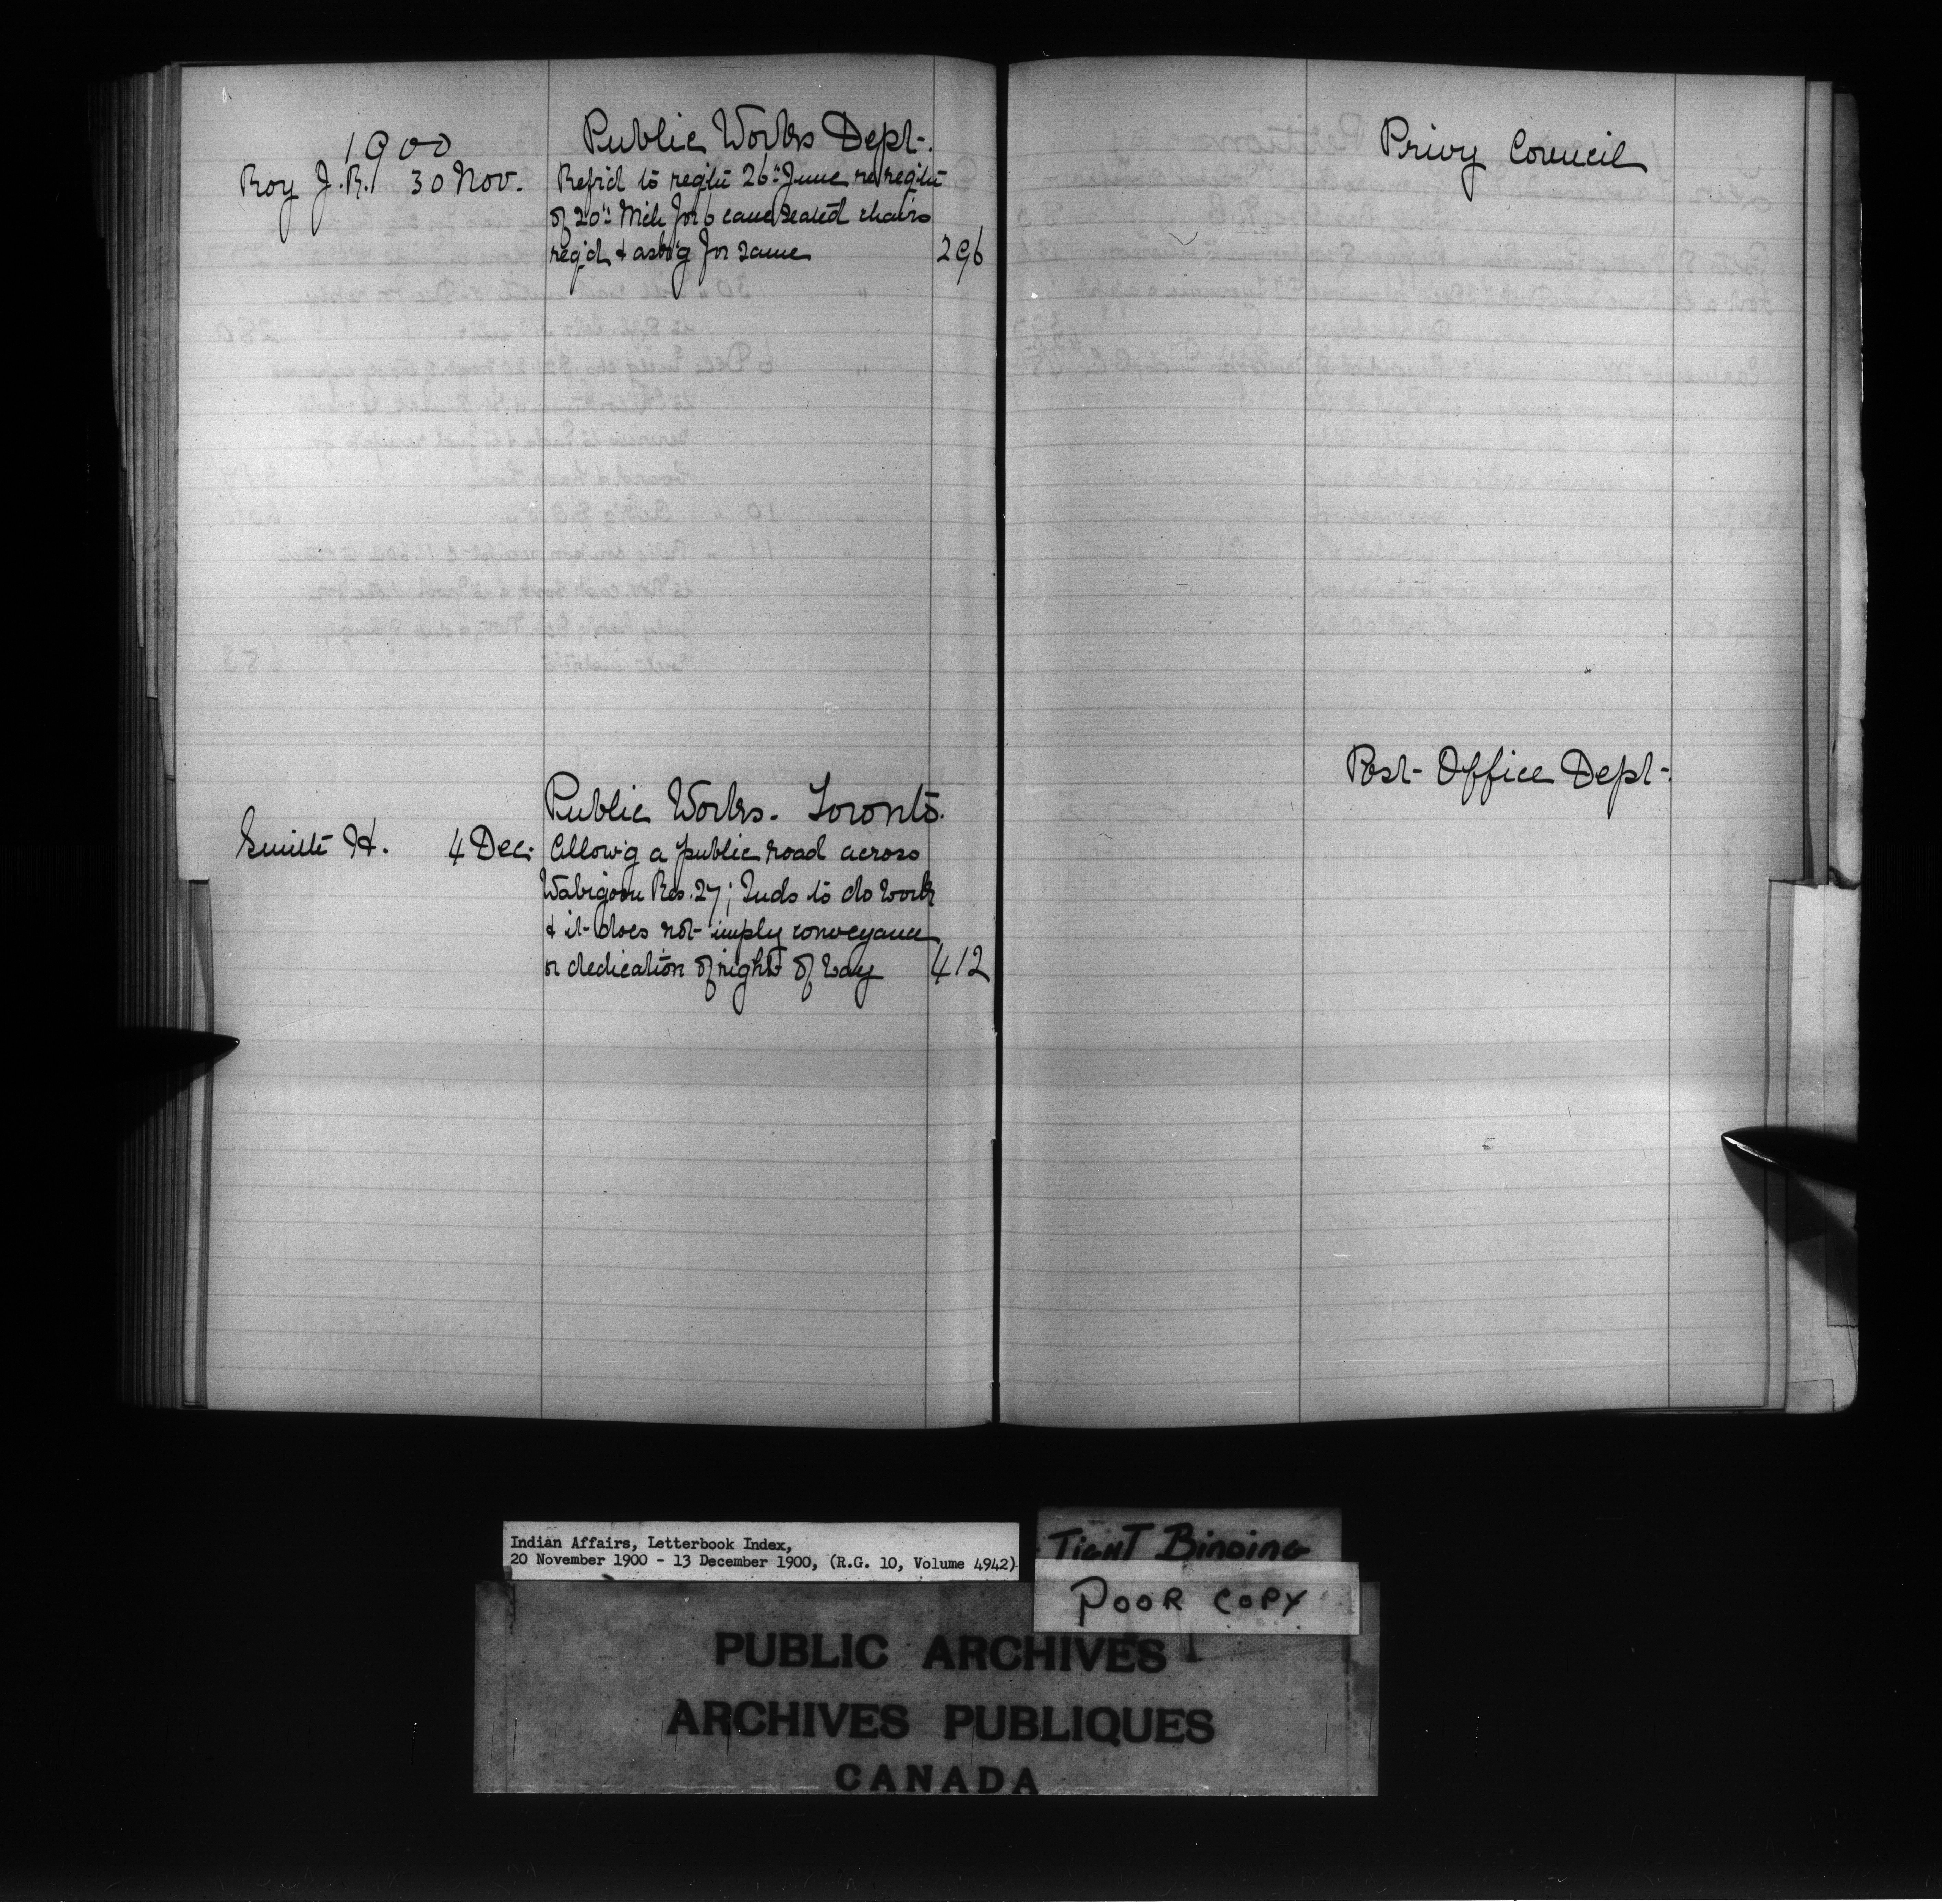 1900
Public Works Dept.
Roy J.R. 30 Nov. Refr'd to reqn 26" June re reqn
of 20" Mch for 6 cane seated chairs
req'd & ask'g for same 296
Public Works. Toronto.
Smith H. 4 Dec. Allow'g a public road across
Wabigoon Res. 27; Inds to do work
& it does not imply conveyance
or dedication of right of way 412
Privy Council
Post Office Dept.
Indian Affairs, Letterbook Index,
20 November 1900 - 13 December 1900, (R.G. 10, Volume 4942)
TIGHT BINDING
POOR COPY
PUBLIC ARCHIVES
ARCHIVES PUBLIQUES
CANADA